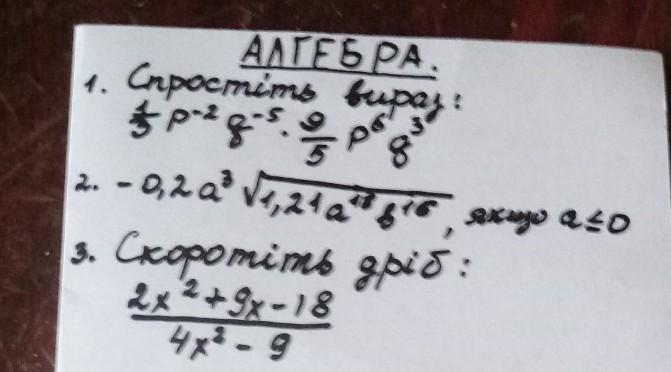 АЛГЕБРА.
1. Спростіть вираз:
1/3 p⁻² q⁻⁵ · 9/5 p⁶ q³
2. -0,2a³ √(1,21a¹⁸b¹⁶), якщо a ≤ 0
3. Скоротіть дріб:
(2x² + 9x - 18)/(4x² - 9)